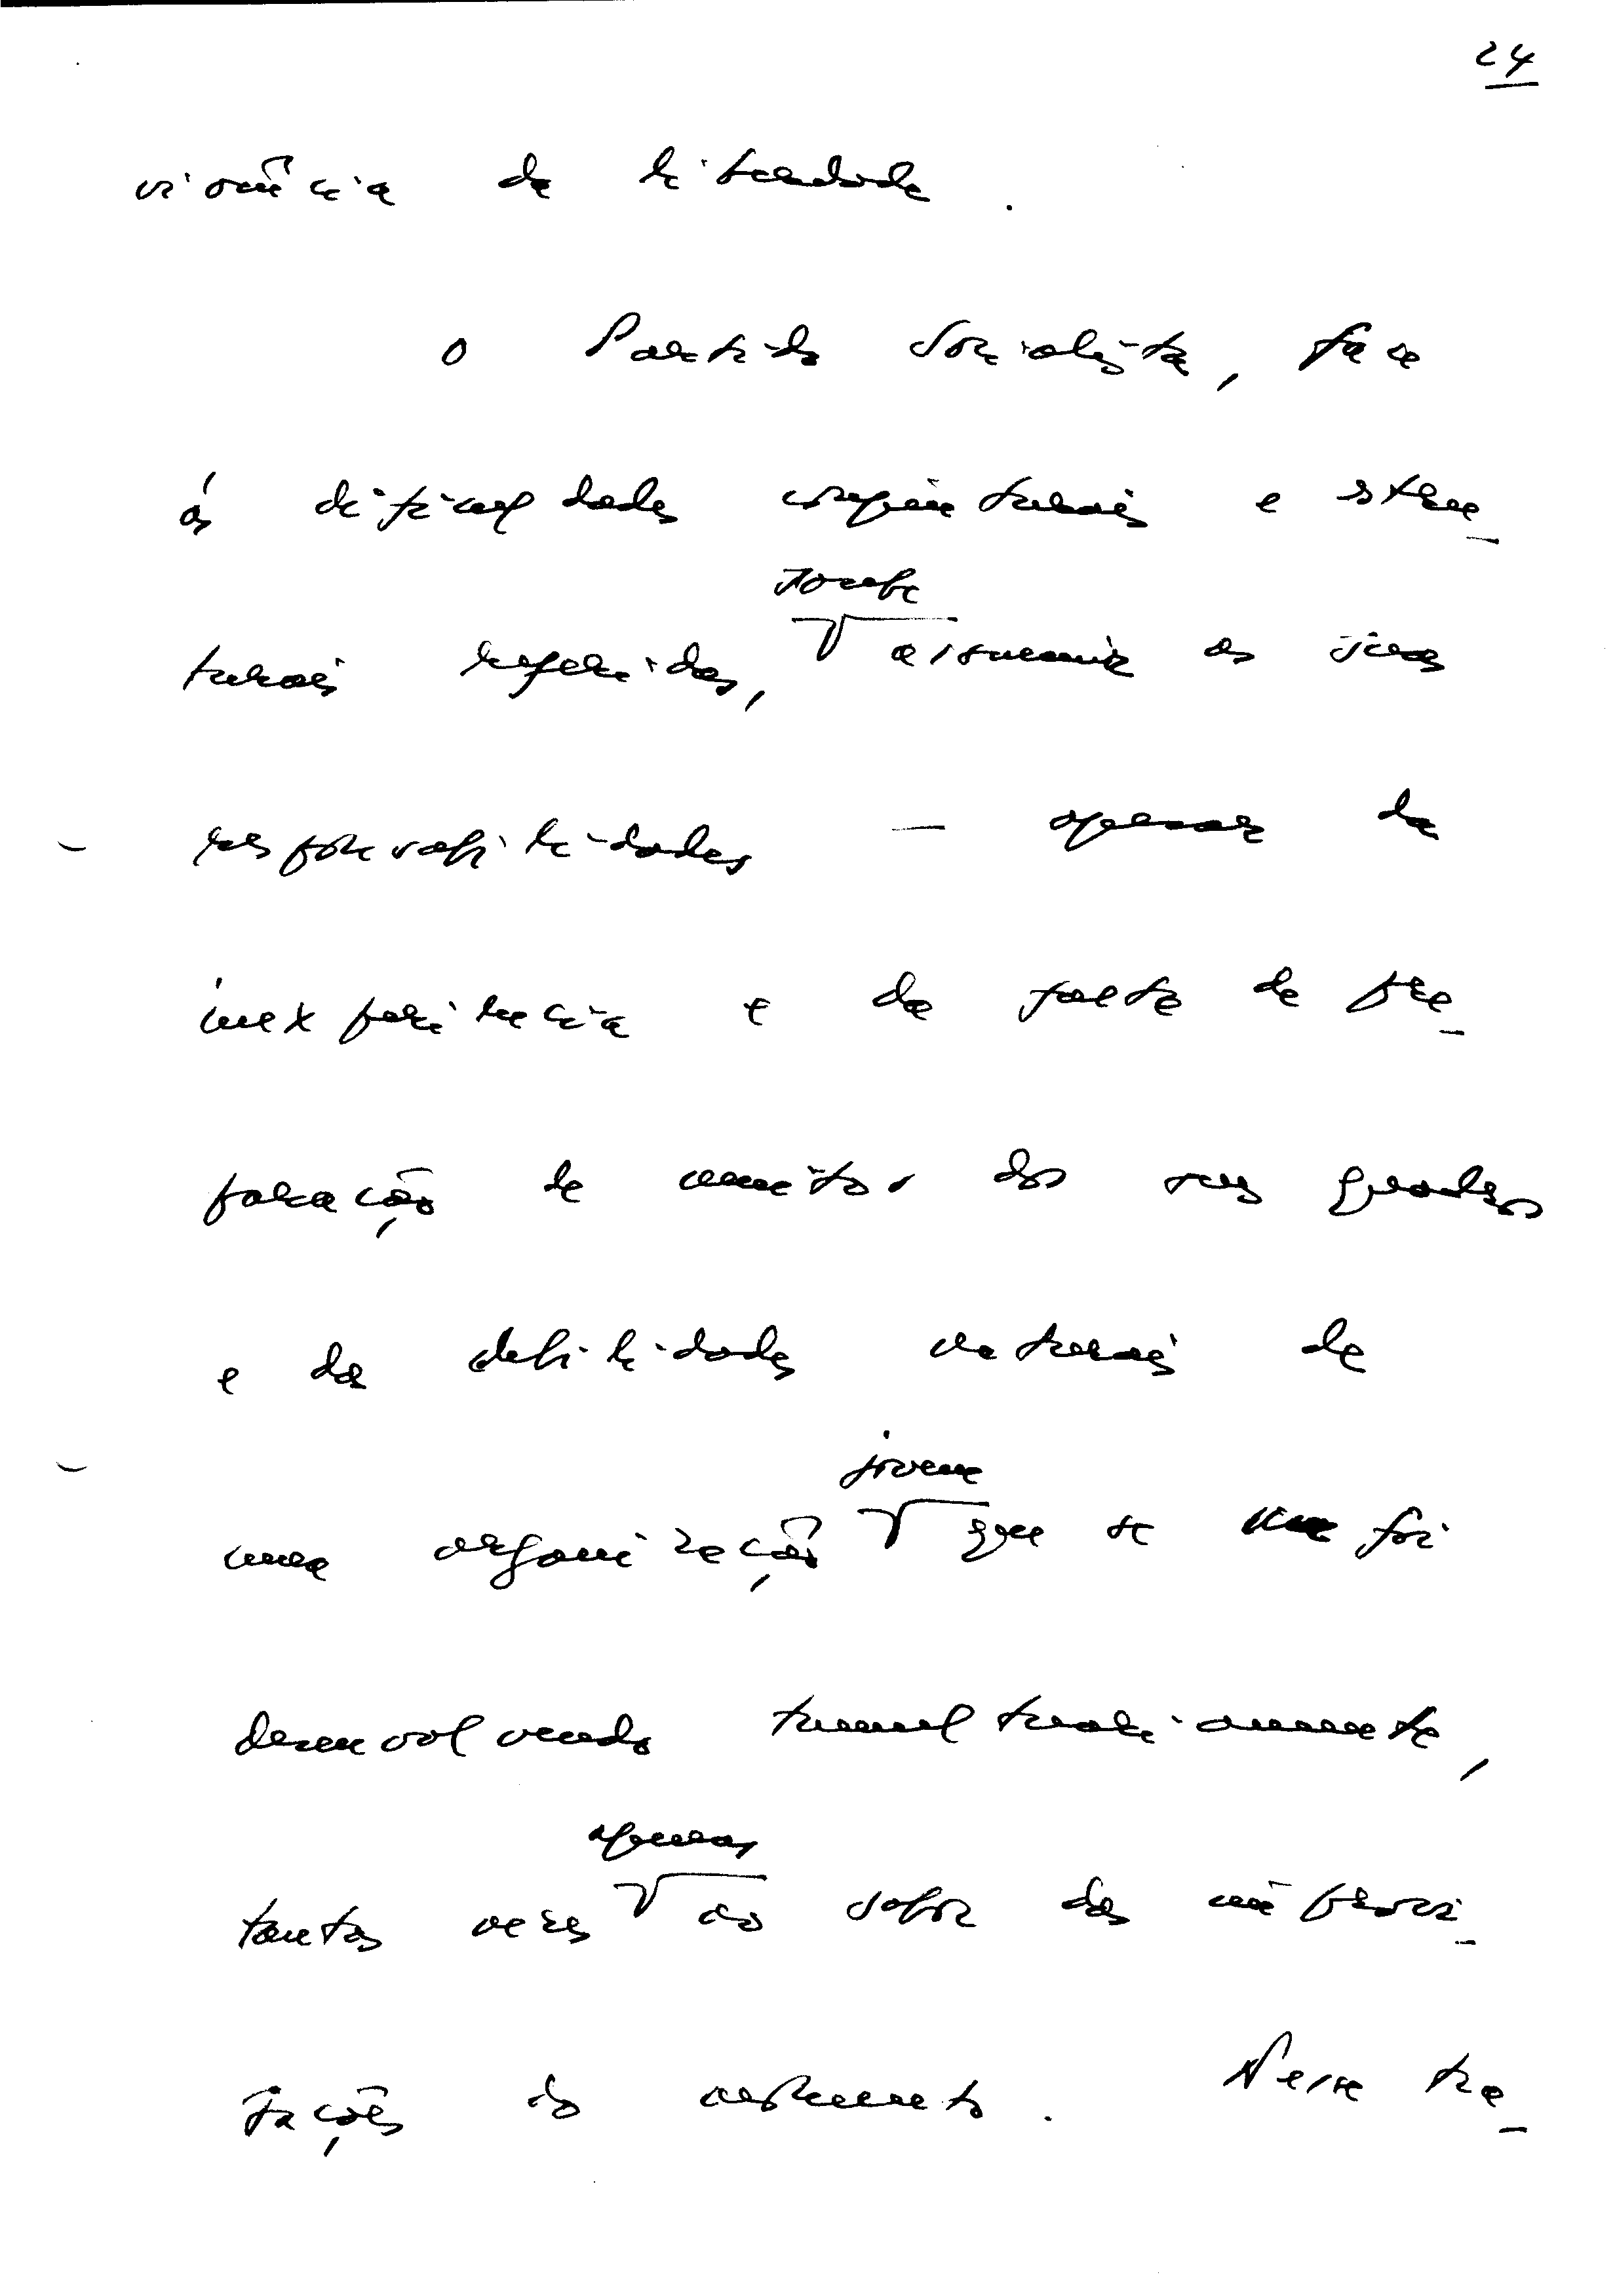 24
vivência da liberdade.
O Partido Socialista, face
às dificuldades conjunturais e estru_
soube
turais referidas, assumir as suas
responsabilidades — apesar da
inexperiência e da falta de pre_
paração de muitos dos seus quadros
e das debilidades naturais de
jovem
uma organização que se foi
desenvolvendo tumultuariamente,
apenas
tantas vezes ao sabor das improvi_
sações do momento. Nesse tra_